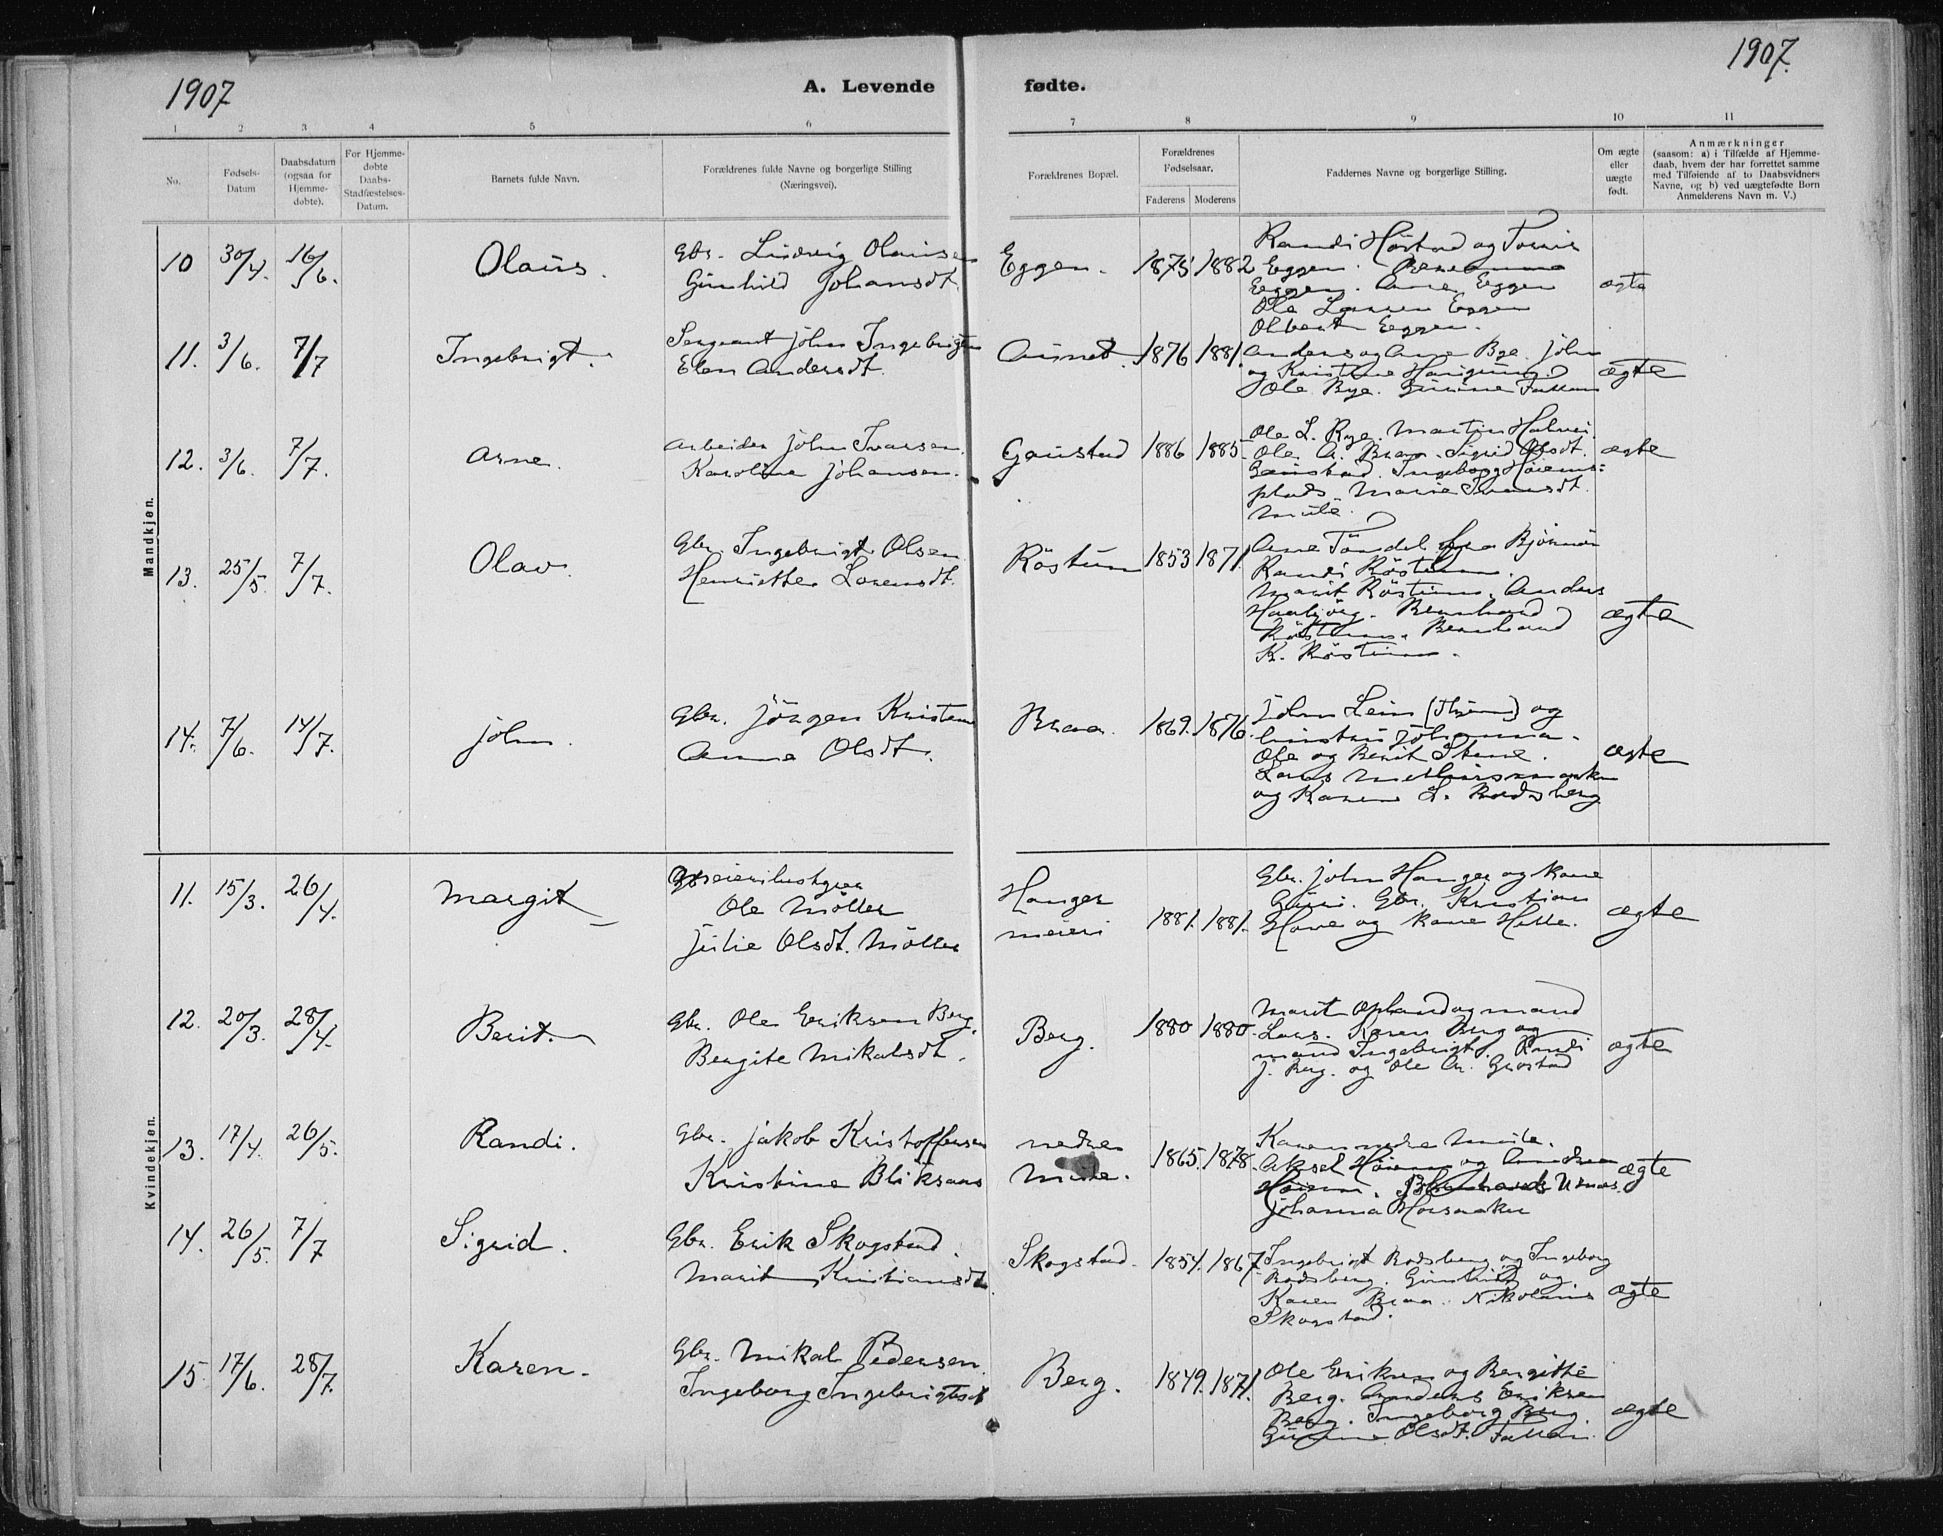 1907
A. Levende fødte.
1907.
1 2 3 4 5 6 7 8 9 10 11
No.
Fødsels-
Datum
Daabsdatum
(ogsaa for
Hjemme-
døbte).
For Hjemme-
døbte
Daabs-
Stadfæstelses-
Datum.
Barnets fulde Navn.
Forældrenes fulde Navne og borgerlige Stilling
(Næringsvei).
Forældrenes Bopæl.
Forældrenes
Fødselsaar.
Faderens Moderens
Faddernes Navne og borgerlige Stilling.
Om ægte
eller
uægte
født.
Anmærkninger
(saasom: a) i Tilfælde af Hjemme-
daab, hvem der har forrettet samme
med Tilføiende af to Daabsvidners
Navne, og b) ved uægtefødte Born
Anmelderens Navn m. V.)
Mandkjøn.
10 30/4. 16/6. Olaus.
Gbr. Ludvig Olausen
Gunhild Johansdt.
Eggen. 1875 1882
Randi Høstad og
Eggen.
Eggen. Ane Eggen
Ole Larsen Eggen
Olbert Eggen.
ægte
11. 3/6. 7/7 Ingebrigt.
Sergeant John Ingebrigtsen
Elen Andersdt.
Aunet. 1876 1881.
Anders og Ane Bye. John
og Kristine
Ole Bye. Gurine
ægte
12. 3/6. 7/7. Arne.
Arbeider John Ivarsen.
Karoline Johansen.
Gaustad 1886 1885
Ole L. Rye. Martin
Ole A. Braa. Sigrid Olsdt.
Gaustad. Ingeborg Høiems-
plads. Marie
Mule.
ægte
13. 25/5. 7/7. Olav.
Gbr. Ingebrigt Olsen.
Henriette Larensdt.
Röstum 1853 1871.
Arne
Randi Röstum.
Marit Röstum. Anders
Haabjörg. Bernhard
Röstum. Bernhard
K. Röstum.
ægte
14. 7/6. 14/7. John.
Gbr. Jörgen Kristens
Anna Olsdt.
Braa. 1869. 1876.
John Lein og
hustru Johanna.
Ole og Berit Stene.
Lars
og Karen L. Rodsberg
ægte
Kvindekjøn.
11. 15/3. 26/4. Margit
Ole Möller
Julie Olsdt. Möller
Hanger
meieri
1881. 1881.
Gbr. John Hanger og kone
Guri. Gbr. Kristian
Hove og kone
ægte
12. 20/3. 28/4. Berit.
Gbr. Ole Eriksen Berg.
Bergite Mikalsdt.
Berg. 1880 1880.
Marit Opland og mand
Lars. Karen Berg og
mand Ingebrigt. Randi
J. Berg. og Ole
ægte
13. 17/4. 26/5. Randi.
Gbr. Jakob Kristoffersen
Kristine Bliksaas
nedre
Mule.
1865. 1878.
Karen nedre Mule.
Aksel Höiem og Andrea
Höiem.
Johanna
ægte
14. 26/5. 7/7 Sigrid.
Gbr. Erik Skogstad.
Marit Kristiansdt.
Skogstad. 1854. 1867.
Ingebrigt Rodsberg og Ingeborg
Rodsberg. Gunhild og
Karen Braa. Nikolaus
Skogstad.
ægte
15 17/6. 28/7. Karen.
Gbr. Mikal Pedersen.
Ingeborg Ingebrigtsdt
Berg. 1849. 1871.
Ole Eriksen og Bergitte
Berg. Anders Eriksen
Berg. Ingeborg Berg.
Olsdt.
ægte